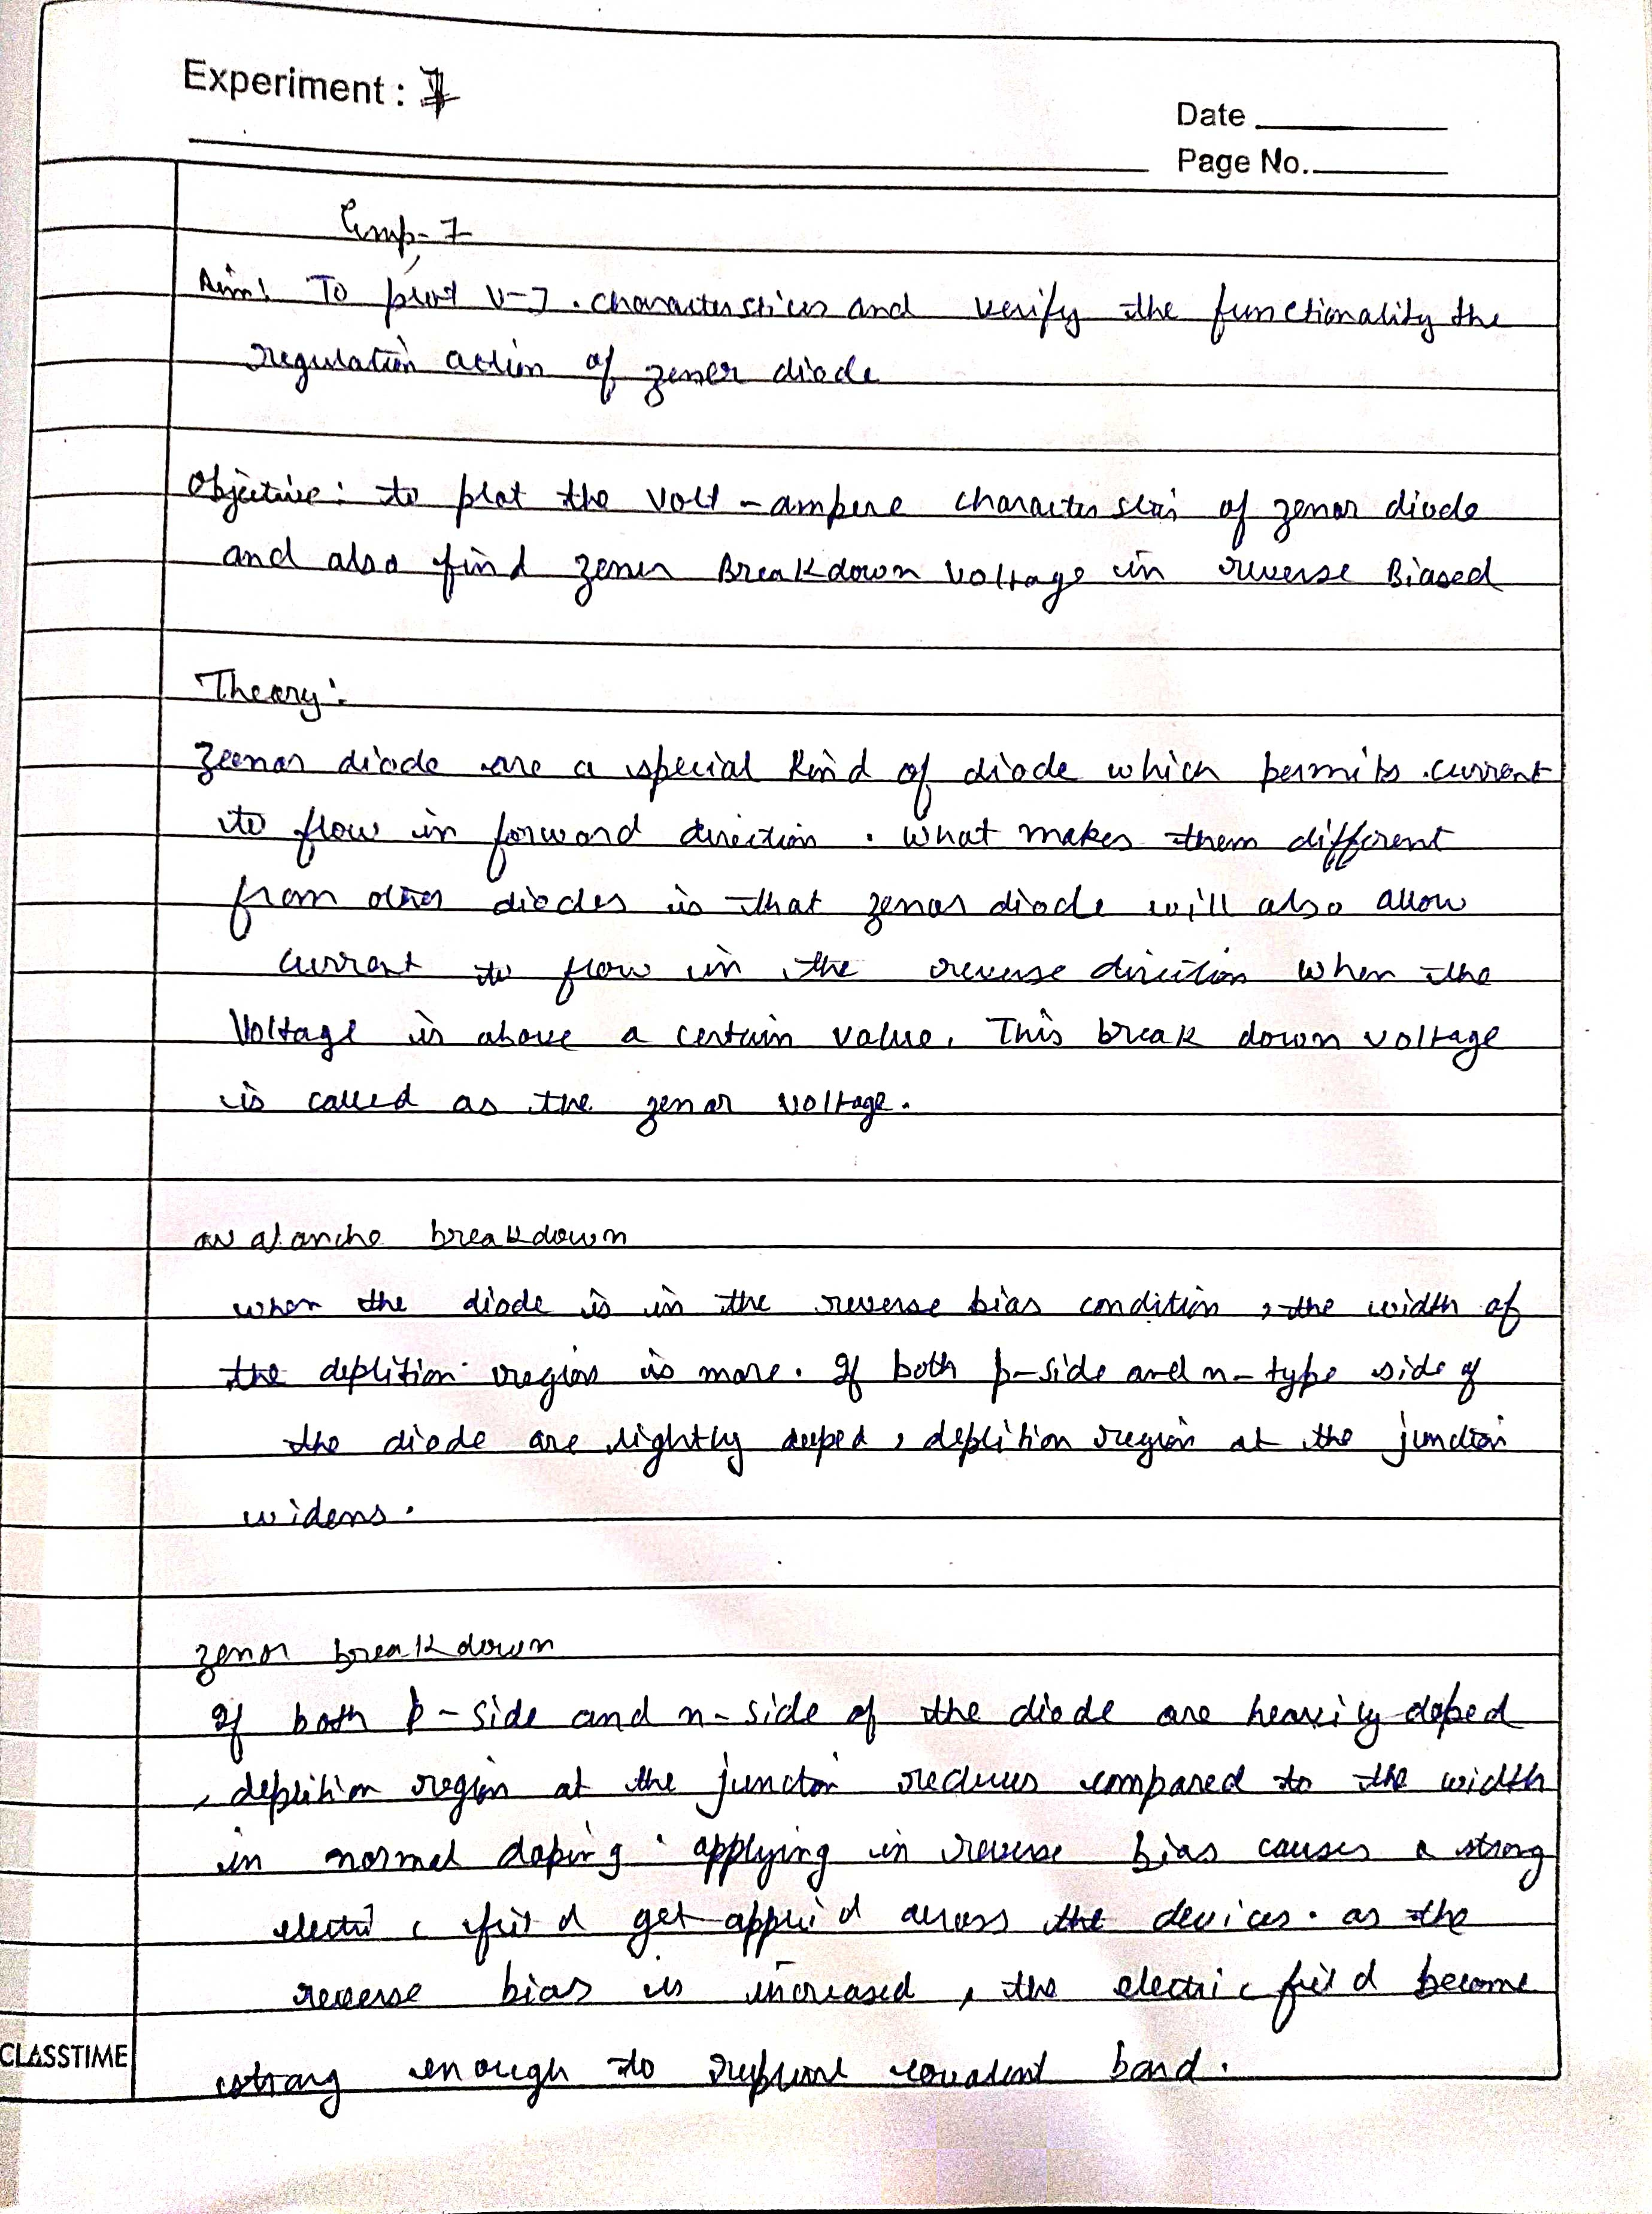 Experiment : 7
Date
Page No.
Exp-7
Aim: To plot V-I characterstices and verify the functionality the
regulation action of zener diode
Objective: to plot the volt-ampere characterstic of zenar diode
and also find zener Breakdown voltage in reverse Biased
Theory:
Zeenar diode are a special kind of diode which permits current
to flow in forward direction. What makes them different
from other diodes is that zenar diode will also allow
current to flow in the reverse direction when the
Voltage is above a certain value. This break down voltage
is called as the zenar voltage.
avalanche breakdown
when the diode is in the reverse bias condition, the width of
the deplition region is more. If both p-side and n-type side of
the diode are lightly doped, deplition region at the junction
widens.
zenar breakdown
If both p-side and n-side of the diode are heavily doped
, deplition region at the junction reduces compared to the width
in normal doping. applying in reverse bias causes a strong
electric field get applied across the devices. as the
reverse bias is increased, the electric field become
strong enough to rupture covalent band.
CLASSTIME